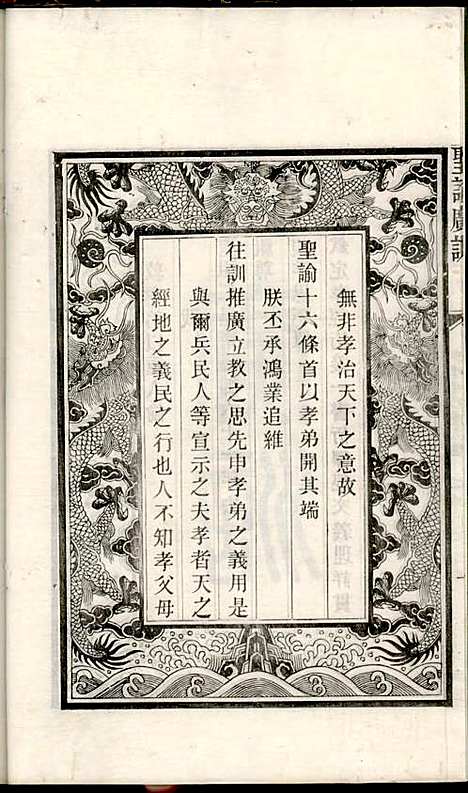 聖諭廣訓
無非孝治天下之意故
聖諭十六條首以孝弟開其端
朕丕承鴻業追維
往訓推廣立教之思先申孝弟之義用是
與爾兵民人等宣示之夫孝者天之
經地之義民之行也人不知孝父母